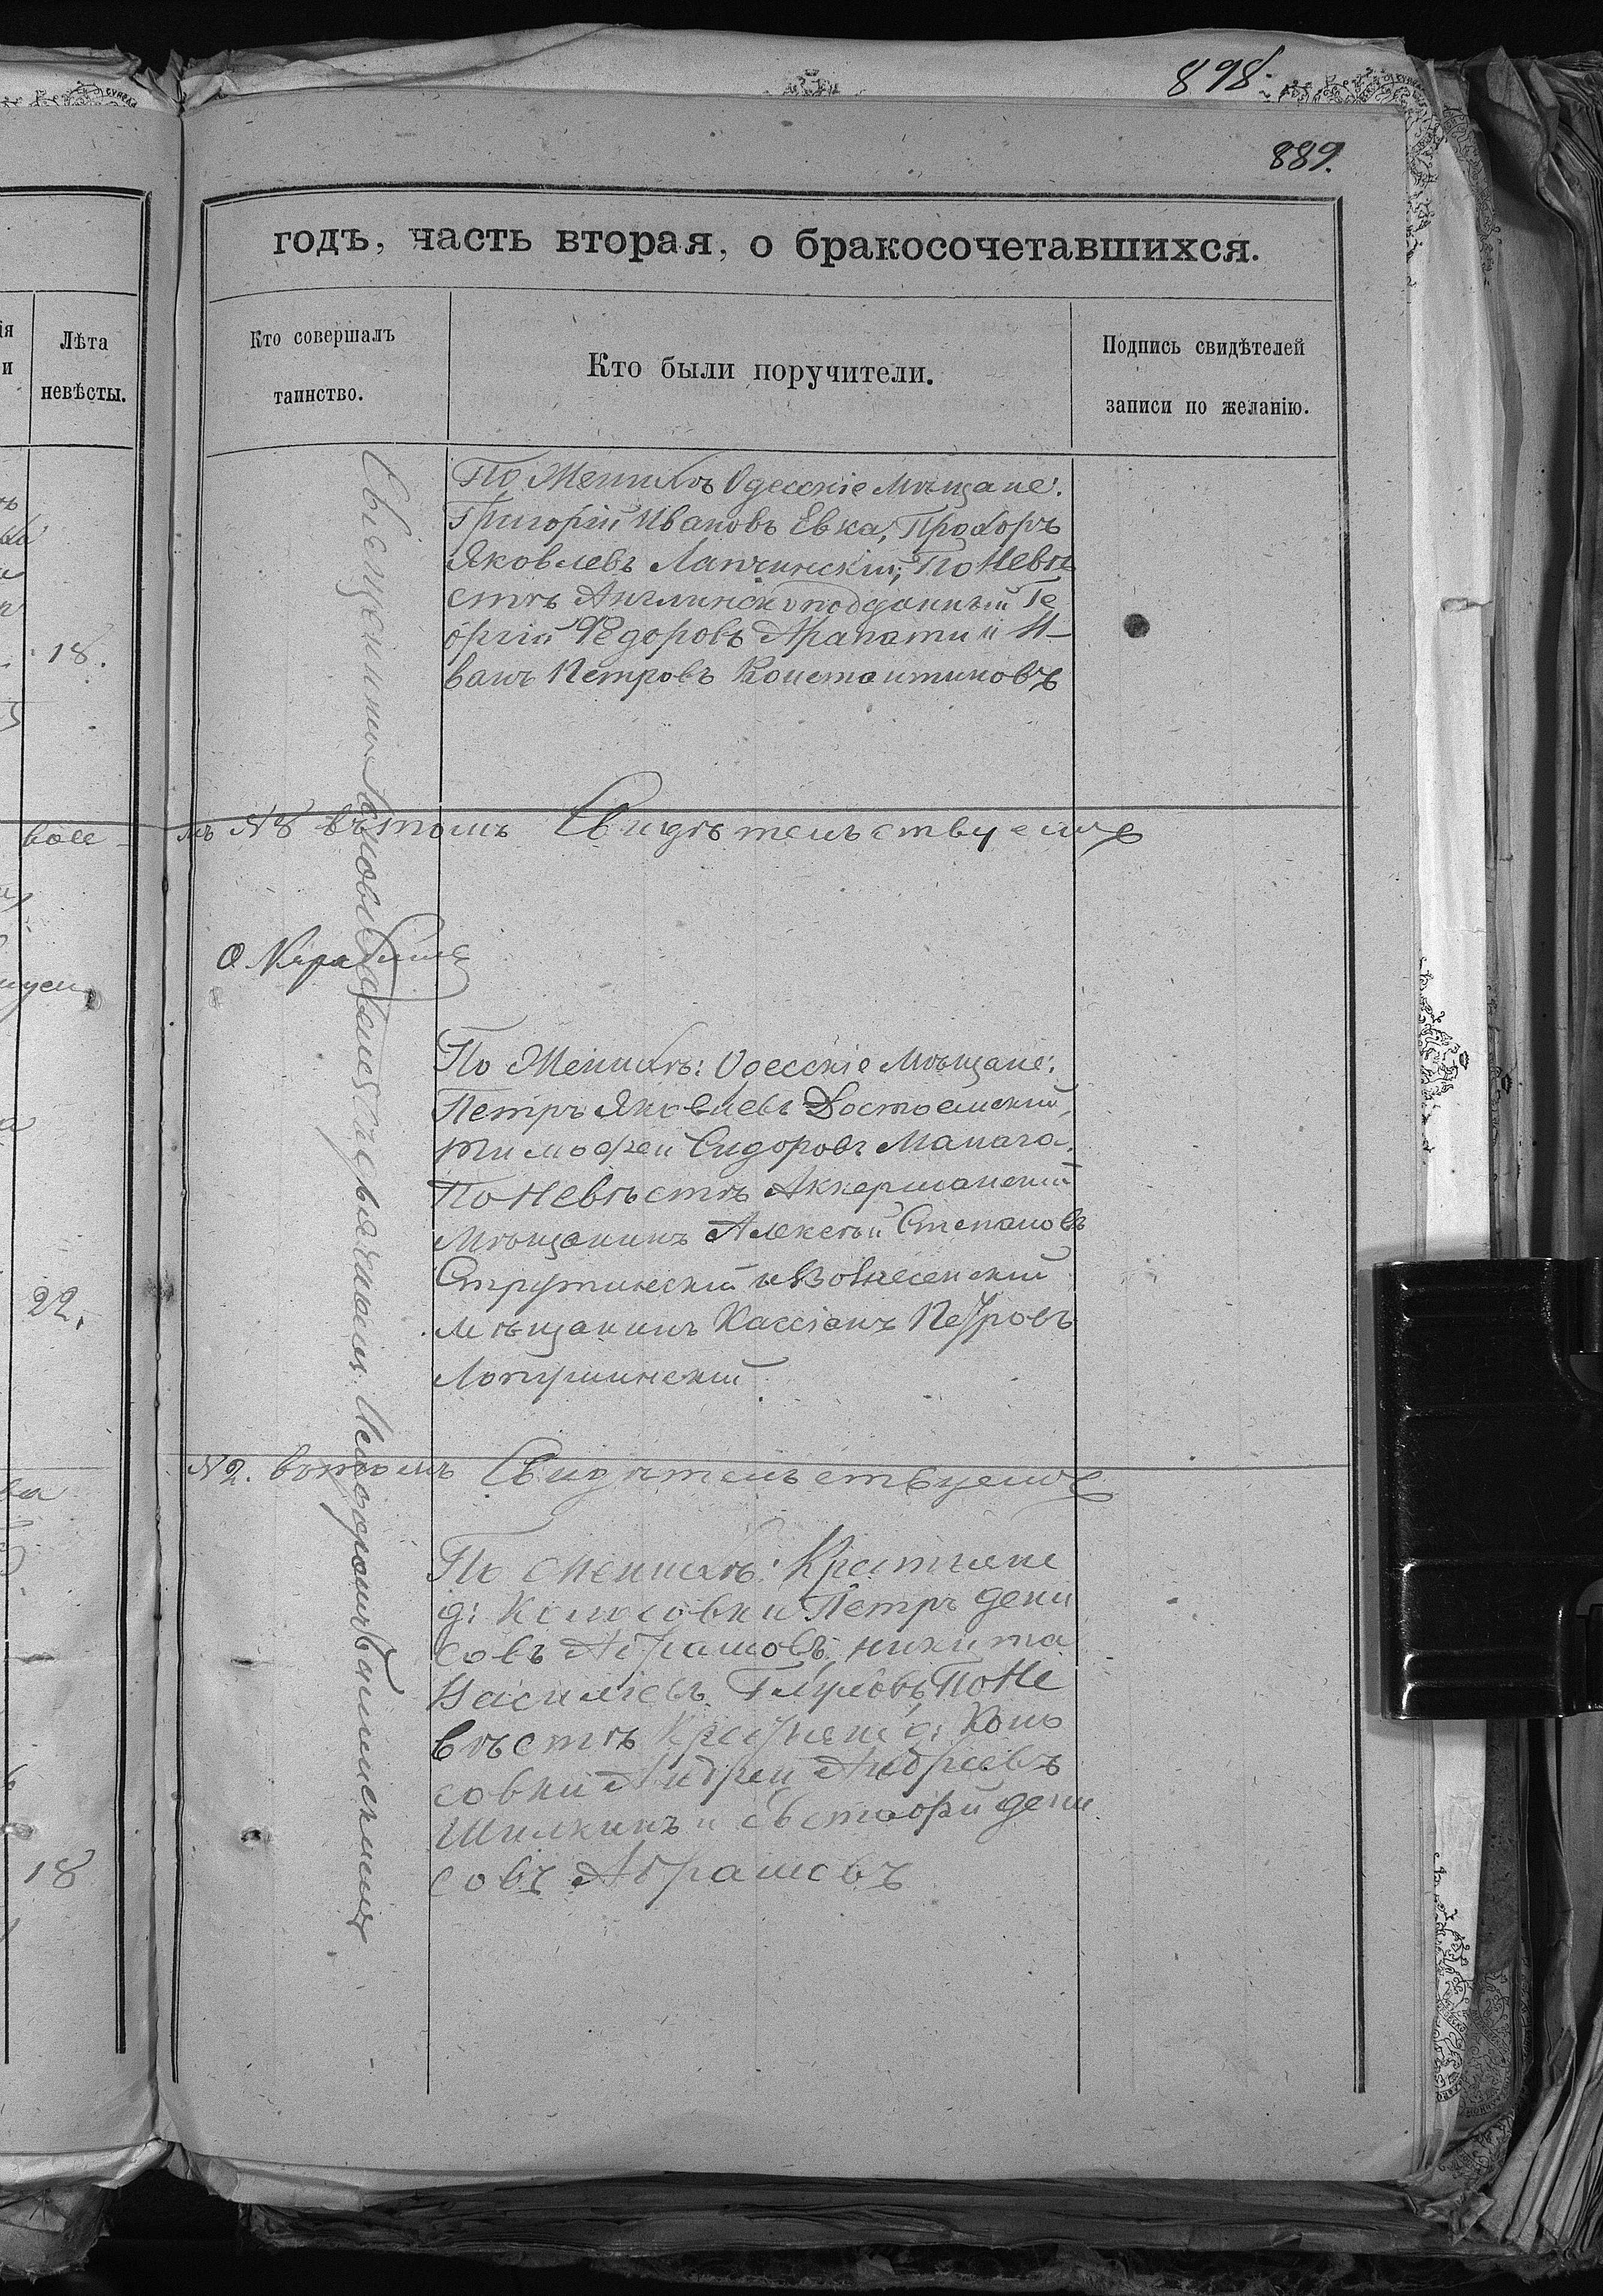 898.
889.
годъ, часть вторая, о бракосочетавшихся.
Лѣта
невѣсты.
Кто совершалъ
таинство.
Кто были поручители.
Подпись свидѣтелей
записи по желанію.
По Женихѣ Одесскіе Мѣщане:
Григорій Ивановъ Евка, Прохоръ
Яковлевъ Лапчинскій; По Невѣ
стѣ Англинскоподданный Ге
оргій Ѳедоровъ Арапати и И-
ванъ Петровъ Константиновъ
18.
въ томъ Свидѣтельствуемъ
По Женихѣ: Одесскіе Мѣщане:
Петръ Яковлевъ
Тимофей Сидоровъ
По Невѣстѣ Аккерманскій
Мѣщанинъ Алексѣй Степановъ
Струтинскій и Вознесенскій
Мѣщанинъ Кассіанъ Петровъ
Лопушинскій
22.
№ 2. въ томъ Свидѣтельствуемъ
По Женихѣ: Крестьяне
д: Колосовки Петръ Дени
совъ Абрамовъ, Никита
Васильевъ По Не
вѣстѣ Крестьяне д: Коло
совки Андрей Андреевъ
Шилкинъ и Дени
совъ Абрамовъ
18
Священникъ